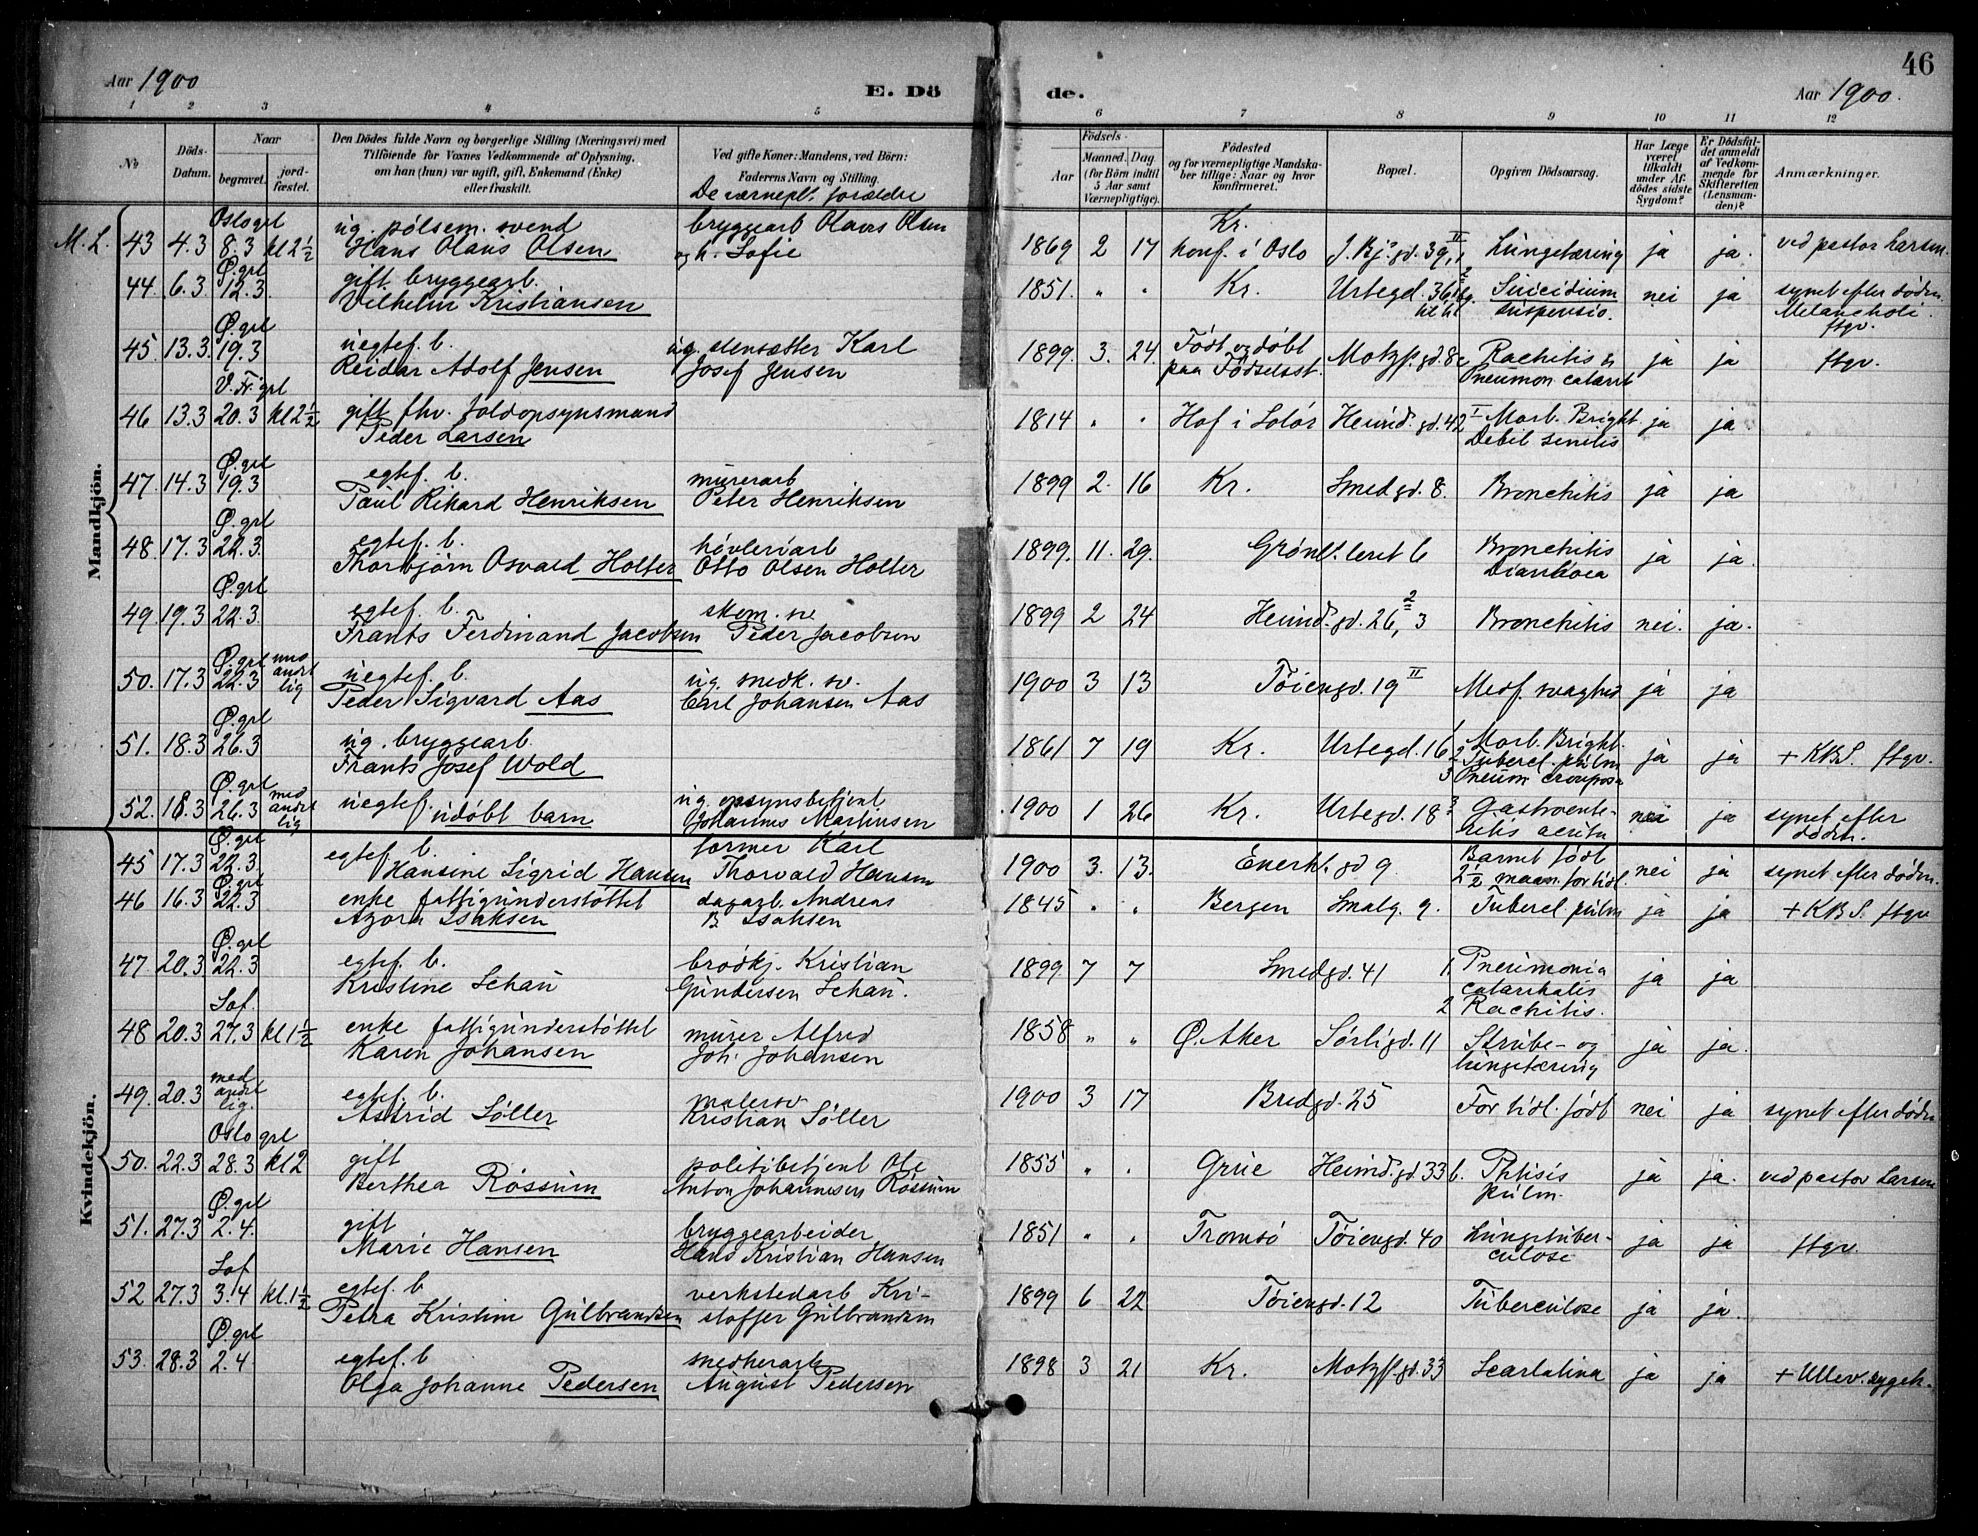 46
Aar 1900
E. Dö
de.
Aar 1900.
1 2 3 4 5 6 7 8 9 10 11 12
No
Döds-
Datum.
Naar
begravet.
jord-
fæstet.
Den Dödes fulde Navn og borgerlige Stilling (Næringsvei) med
Tilföiende for Voxnes Vedkommende af Oplysning,
om han (hun) var ugift, gift, Enkemand (Enke)
eller fraskilt.
Ved gifte Koner: Mandens, ved Börn:
Faderens Navn og Stilling.
De værnepl. forældre
Födsels-
Aar
Maaned. Dag
(for Börn indtil
5 Aar samt
Værnepligtige).
Födested
og for værnepligtige Mandska-
ber tillige: Naar og hvor
konfirmeret.
Bopæl.
Opgiven Dödsaarsag.
Har Læge
været
tilkaldt
under Af-
dödes sidste
Sygdom?
Er Dödsfal-
det anmeldt
af Vedkom-
mende for
Skifteretten
(Lensman-
den)?
Anmærkninger.
Mandkjön.
M.L. 43 4.3 Oslo grl 8.3 kl 2½ ug. pølsem. svend
Hans Olaus Olsen bryggearb Olaves Olsen
og h. Sofie 1869 2 17 Kr.
konf. i Oslo J. Bj. gd. 39 II, 1 Lungetæring ja ja. ved pastor Larsen.
44 6.3 Ø. grl 12.3 gift bryggearb.
Vilhelm Kristiansen 1851. " " Kr. Urtegd. 36 Suicidium
suspensio. nei ja synet efter døden.
Melancholi
ftgv.
45 13.3. Ø. grl 19.3 uegtef. b.
Reidar Adolf Jensen ug. stensætter Karl
Josef Jensen 1899. 3. 24. Født og døbt
paa Fødselsst. Motzf. gd. 8c Rachitis &
Pneumon. catarrh ja ja ftgv.
46 13.3 V. Fr. grl 20.3 kl 2½ gift fhv. toldopsynsmand
Peder Larsen 1814 " " Hof i Solør Heimd. gd. 42 I Morb. Bright.
Debil. senilis ja ja
47. 14.3 Ø. grl 19.3 egtef. b.
Paul Rikard Henriksen murerarb
Peter Henriksen 1899 2. 16 Kr. Smedgd. 8. Bronchitis ja ja
48. 17.3 Ø. grl 22.3. egtef. b.
Thorbjørn Osvald Holter høvleriarb
Otto Olsen Holter 1899. 11. 29. Grønl. leret 6 Bronchitis
Diarrhoea ja ja.
49. 19.3 Ø. grl 22.3. egtef. b.
Frants Ferdinand Jacobsen skom. sv
Peder Jacobsen 1899 2 24 Heimd. gd. 26 2, 3 Bronchitis nei. ja.
50. 17.3 Ø. grl 22.3 med andet lig uegtef. b.
Peder Sigvard Aas ug. snedk. sv.
Carl Johansen Aas 1900 3 13 Tøiengd. 19 II Medf. svaghed ja ja
51. 18.3 Ø. grl 26.3 ug. bryggearb.
Frants Josef Wold 1861 7 19 Kr. Urtegd. 16 1 Morb. Bright.
2 Tubercl. pulm
3 Pneum crouposa ja ja + KBS. ftgv.
52. 18.3 Ø. grl 26.3 med andet lig uegtef. udøbt barn ug. opsynsbetjent
Johannes Martinsen 1900 1 26 Kr. Urtegd. 18 3 Gastroente-
ritis acuta nei ja synet efter
døden.
Kvindekjön.
45 17.3 Ø. grl 22.3. egtef. b.
Hansine Sigrid Hansen former Karl
Thorvald Hansen 1900 3. 13. Enerh. gd 9 Barnet født
2½ maan. for tidl. nei ja synet efter døden.
46 16.3 Ø. grl 22.3 enke fattigunderstøttet
Azora Isaksen dagarb. Andreas
B Isaksen 1845 " " Bergen Smalg. 9. Tubercl. pulm ja ja + KBS. ftgv
47 20.3 Ø. grl 22.3 egtef. b.
Kristine Schau brødkj. Kristian
Gundersen Schau. 1899 7 7 Smedgd. 41 1. Pneumonia
catarrhalis
2 Rachitis. ja ja
48 20.3 Sof. 27.3 kl 1½ enke fattigunderstøttet
Karen Johansen murer Alfred
Joh. Johansen 1858 " " Ø. Aker Sørligd. 11 Strube- og
lungetæring ja ja.
49. 20.3 med andet lig. egtef. b.
Astrid Søller malersv
Kristian Søller 1900 3 17 Bredgd. 25 For tidl. født nei ja synet efter døden
50. 22.3 Oslo grl 28.3 kl 2 gift
Berthea Røssum politibetjent Ole
Anton Johannesen Røssum 1855 " " Grue Heimd. gd. 33 b. Phtisis
pulm. ja ja. ved pastor Larsen
51. 27.3 Ø. grl 2.4. gift
Marie Hansen bryggearbeider
Hans Kristian Hansen 1851 " " Tromsø Tøiengd. 40 Lungetuber-
culose ja ja ftgv.
52 27.3 Sof 3.4 kl. 1½ egtef. b
Petra Kristine Gulbrandsen verkstedarb Kri-
stoffer Gulbrandsen 1899 6 22 Tøiengd. 12 Tuberculose ja ja.
53. 28.3 Ø. grl 2.4. egtef. b
Olga Johanne Pedersen snedkerarb
August Pedersen 1898 3 21 Kr. Motzf. gd. 33 Scarlatina ja ja + Ullev. sygeh.